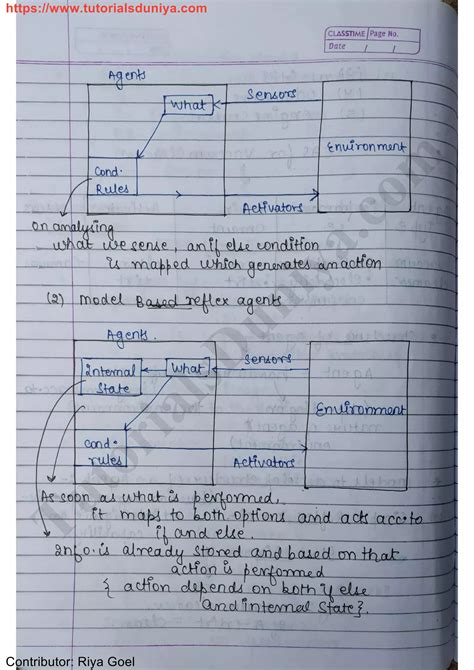 https://www.tutorialsduniya.com
CLASSTIME Page No.
Date / /
Agents
What
Sensors
Environment
Cond.
Rules
Activators
on analysing
what we sense, an if else condition
is mapped which generates an action
(2) Model Based reflex agents
Agents.
Internal
State
What
Sensors
Environment
Cond.
rules
Activators
As soon as what is performed,
it maps to both options and acts acc. to
if and else.
Info. is already stored and based on that
action is performed
{ action depends on both if else
and internal state}.
TutorialsDuniya.com
Contributor: Riya Goel